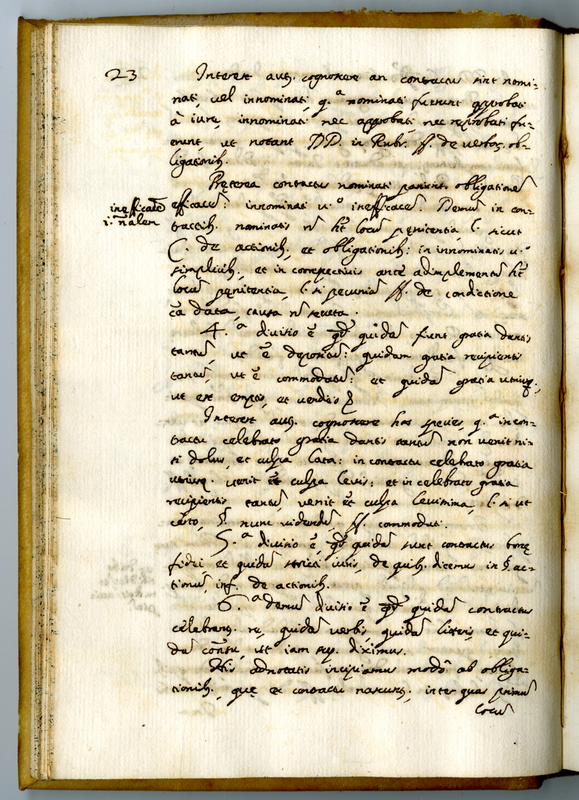 23
Interest aut. cognoscere an contractus sint nomi-
nati, vel innominati, q.ª nominati fuerunt approbati
à iure, innominati nec approbati, nec reprobati fu-
erunt, ut notant DD. in Rubr. ff. de verbor. ob-
ligationib.
Preterea contractus nominati pariunt obligatione
inefficace
efficace: innominati v.º inefficace. Demum in con-
tractib. nominatis nō ht locū penitentia, l. sicut
C. de actionib. et obligationib: in innominatis v.º
simplicib, et in correspectivis ante adimplementū ht
locū penitentia, l. si pecuniā ff. de condictione
cā data, causa nō secuta.
4.ª divisio ē, qd quidā fiunt gratia dantis
tantū, ut ē depositū: quidam gratia recipientis
tantū, ut ē commodatū: et quidā gratia utriusq.,
ut est emptio, et venditio
Interest aut. cognoscere has species, q.ª in con-
tractu celebrato gratia dantis tantū non venit ni-
si dolus, et culpa lata: in contractu celebrato gratia
utriusq. venit ēt culpa levis: et in celebrato gratia
recipientis tantū venit ēt culpa levissima, l. si ut
certo, §. nunc videndū, ff. commodati.
5.ª divisio ē, qd quidā sunt contractus bonę
fidei, et quidā stricti iuris, de quib. dicemus in §. ac-
tionum, inf. de actionib.
6.ª demum divisio ē qd quidā contractus
celebrant. re, quidā verbis, quidā litteris et qui-
dā consū, ut iam sup. diximus.
His adnotatis incipiamus modò ab obliga-
tionib., quę ex contractu nascunt., inter quas primū
locū